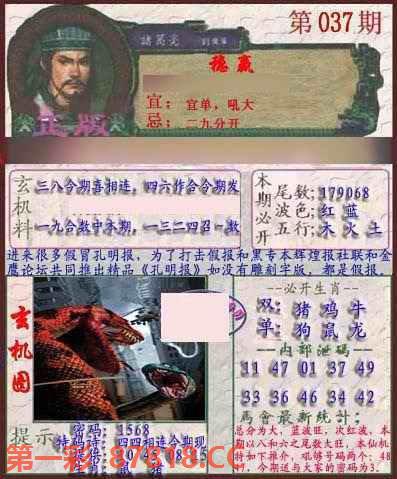 第037期
諸葛亮
稳赢
宜: 宜单,吼大
忌: 二九分开
正版
玄机料
三八合期喜相连,四六作合今期发
一九合数中本期,一三二四召一数
本期必开
尾数:179068
波色:红 蓝
五行:木 火 土
进来很多假冒孔明报,为了打击假报和黑专本辉煌报社联和金
鹰论坛共同推出精品《孔明报》如没有雕刻字版,都是假报.
玄机图
必开生肖
双:猪 鸡 牛
单:狗 鼠 龙
内部泄码
11 47 01 37 49
33 36 46 34 42
馬會最新統計:
总分为大,蓝波旺,次红波,本
期以八和六之尾数大旺,本仙机
特如下推介,吼够号码两个:48
提示
密码:1568
特码诗:四四相连今期现
第一彩:87818.CC
今期道与大家的密码为3.